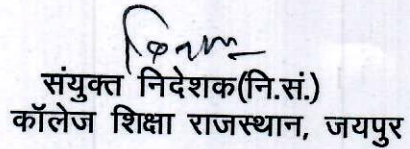 संयुक्त निदेशक(नि.सं.)
कॉलेज शिक्षा राजस्थान, जयपुर